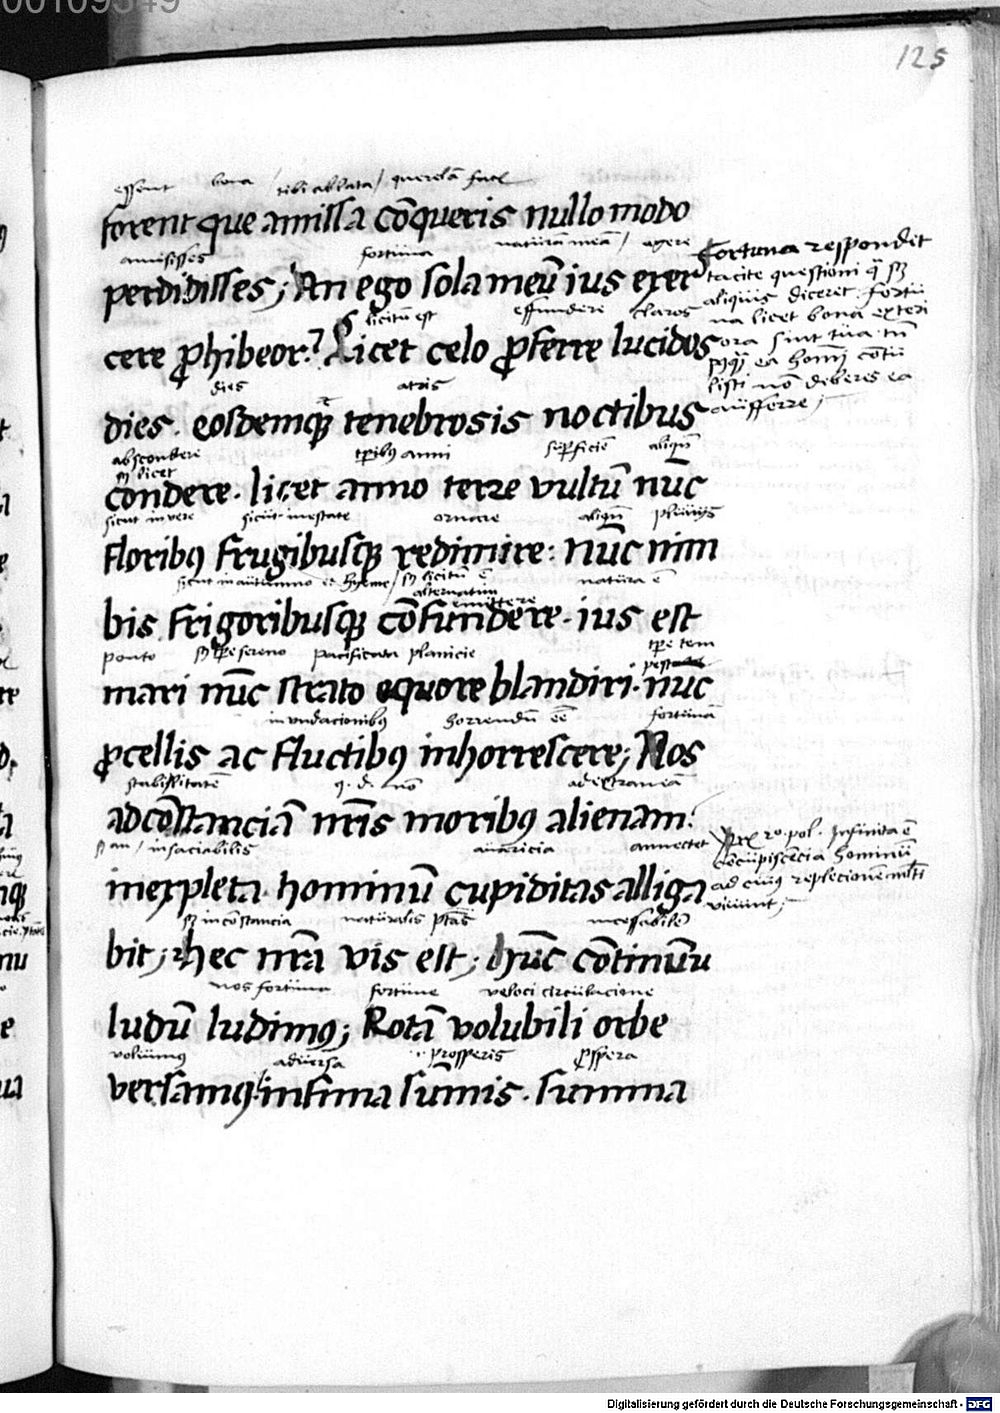 00109349
125
essent bona / tibi ablata / querelā
forent que amissa cōqueris nullo modo
amisisses fortuna naturam meā / agere
perdidisses; An ego sola meū ius exer
licitū est effundere claros
cere ꝓhibeor:? Licet celo ꝓferre lucidos
dies atris
dies . eosdemqꝫ tenebrosis noctibus
abscondere tꝑibꝰ anni suꝑficiē aliqn̄
licet
condere . licet anno terre vultū nūc
sicut in vere sicut in estate ornare aliqn̄ pluuijs
floribꝰ frugibusqꝫ redimire : nūc nim
sicut in autumno et hyeme / licitū ē natura ē
alternatim
emittere
bis frigoribusqꝫ cōfundere . ius est
ponto tꝑe sereno pacificata planicie tꝑe tem
pestatis
mari nūc strato equore blandiri . nūc
inundacionibꝰ horrendū ēē fortunā
ꝓcellis ac fluctibꝰ inhorrescere; Nos
stabilitatē q. d. nō ad extraneā
ad cōstanciā nr̄is moribꝰ alienam :
insaciabilis auaricia annectet
inexpleta . hominū cupiditas alliga
inconstancia naturalis ptās incessabilē
bit; hec nr̄a vis est; hūc cōtinuū
nos fortuna fortune veloci circulacione
ludū ludimꝰ; Rotā volubili orbe
voluimꝰ aduersa prosperis ꝓspera
versamꝰ / infima sūmis . summa
Fortuna respondet
tacite questioni
aliquis diceret fortu
na licet bona exteri
ora sint tua tn̄
ea homī cōtu
listi nō deberes ea
aufferre;
pol. Infinita ē
cōcupiscēcia hominū
ad cuius replecionem
viuunt;
Digitalisierung gefördert durch die Deutsche Forschungsgemeinschaft - DFG